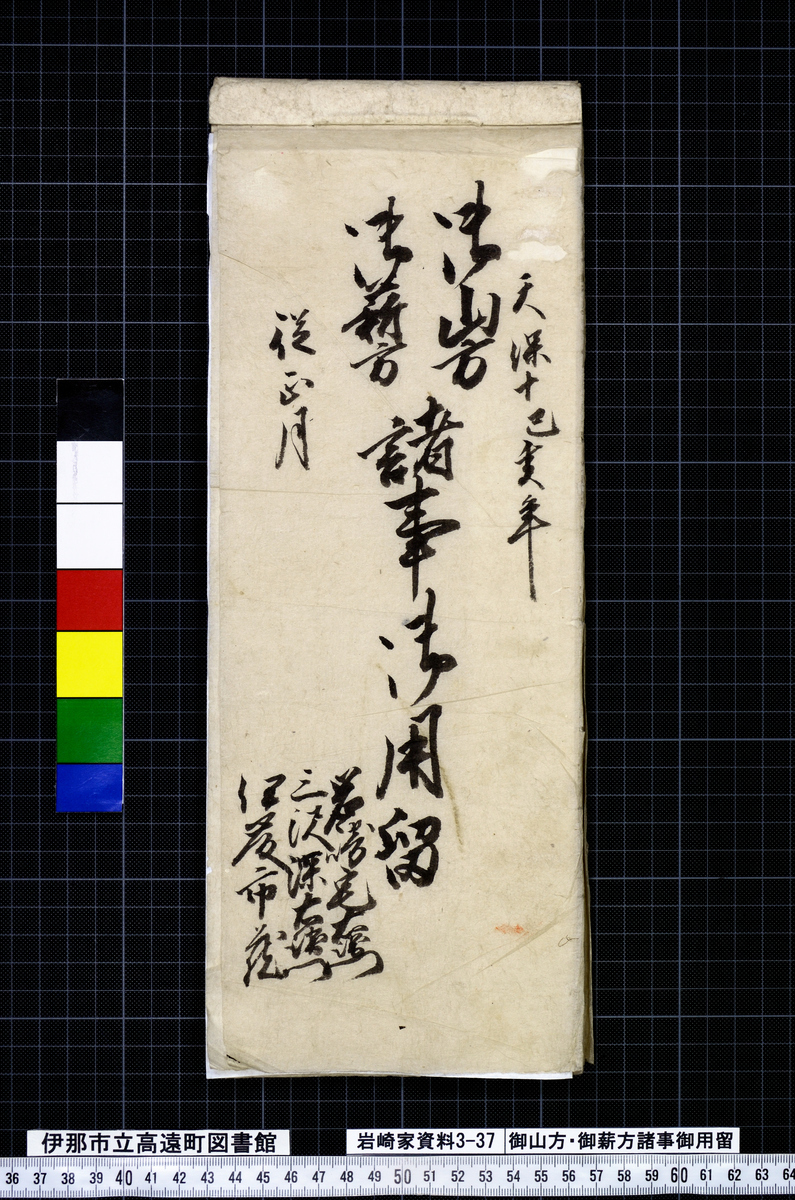 天保十己亥年
御山方
御薪方
諸事御用留
従正月
岩崎宅右衛門
三沢深右衛門
伊藤市蔵
伊那市立高遠町図書館
岩崎家資料3-37
御山方・御薪方諸事御用留
36 37 38 39 40 41 42 43 44 45 46 47 48 49 50 51 52 53 54 55 56 57 58 59 60 61 62 63 64